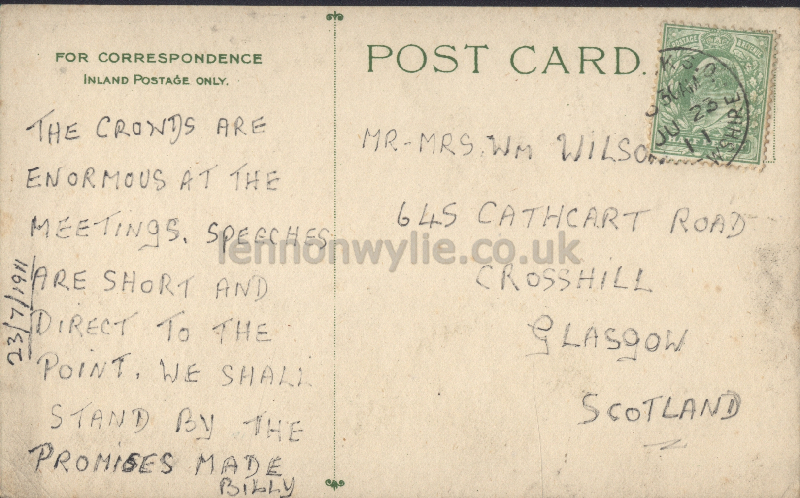 FOR CORRESPONDENCE
INLAND POSTAGE ONLY.
POST CARD.
THE CROWDS ARE
ENORMOUS AT THE
MEETINGS. SPEECHES
ARE SHORT AND
DIRECT TO THE
POINT. WE SHALL
STAND BY THE
PROMISES MADE
BILLY
23/7/1911
MR-MRS. WM WILSON
645 CATHCART ROAD
CROSSHILL
GLASGOW
SCOTLAND
JU 23
11
lennonwylie.co.uk